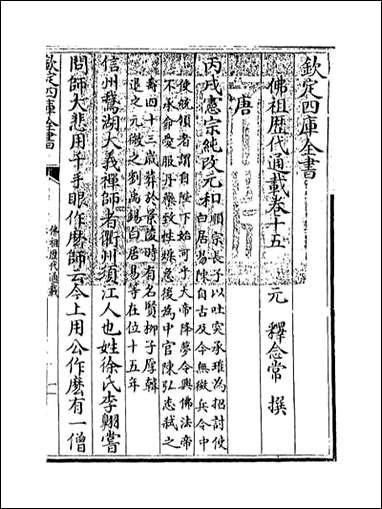 欽定四庫全書
佛祖歴代通載卷十五
元 釋念常 撰
唐
丙戌憲宗純改元和順宗長子以吐突承璀為招討使
白居易陳自古及今無徴兵令中
使統領者謂自陛下始可乎天帝降夢令興佛法帝
不承命愛服丹藥致性躁急後為中官陳弘志弑之
壽四十三歲葬於景陵時有名賢栁子厚韓
退之元微之劉禹錫白居易等在位十五年
信州鵞湖大義禪師者衢州須江人也姓徐氏李翶嘗
問師大悲用千手眼作麽師云今上用公作麽有一僧
欽定四庫全書
佛祖歴代通載